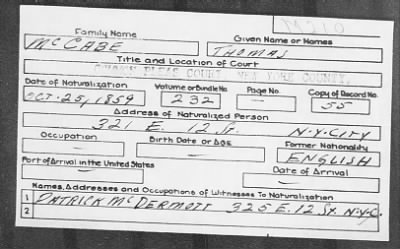 Family Name Given Name or Names
McCABE THOMAS
Title and Location of Court
COMMON PLEAS COURT, NEW YORK COUNTY.
Date of Naturalization Volume or Bundle No. Page No. Copy of Record No.
OCT. 25, 1859 232 55
Address of Naturalized Person
321 E. 12 St. N.Y.CITY
Occupation Birth Date or Age Former Nationality
ENGLISH
Port of Arrival in the United States Date of Arrival
Names, Addresses and Occupations of Witnesses To Naturalization
1 PATRICK McDERMOTT 325 E. 12 St. N.Y.C.
2